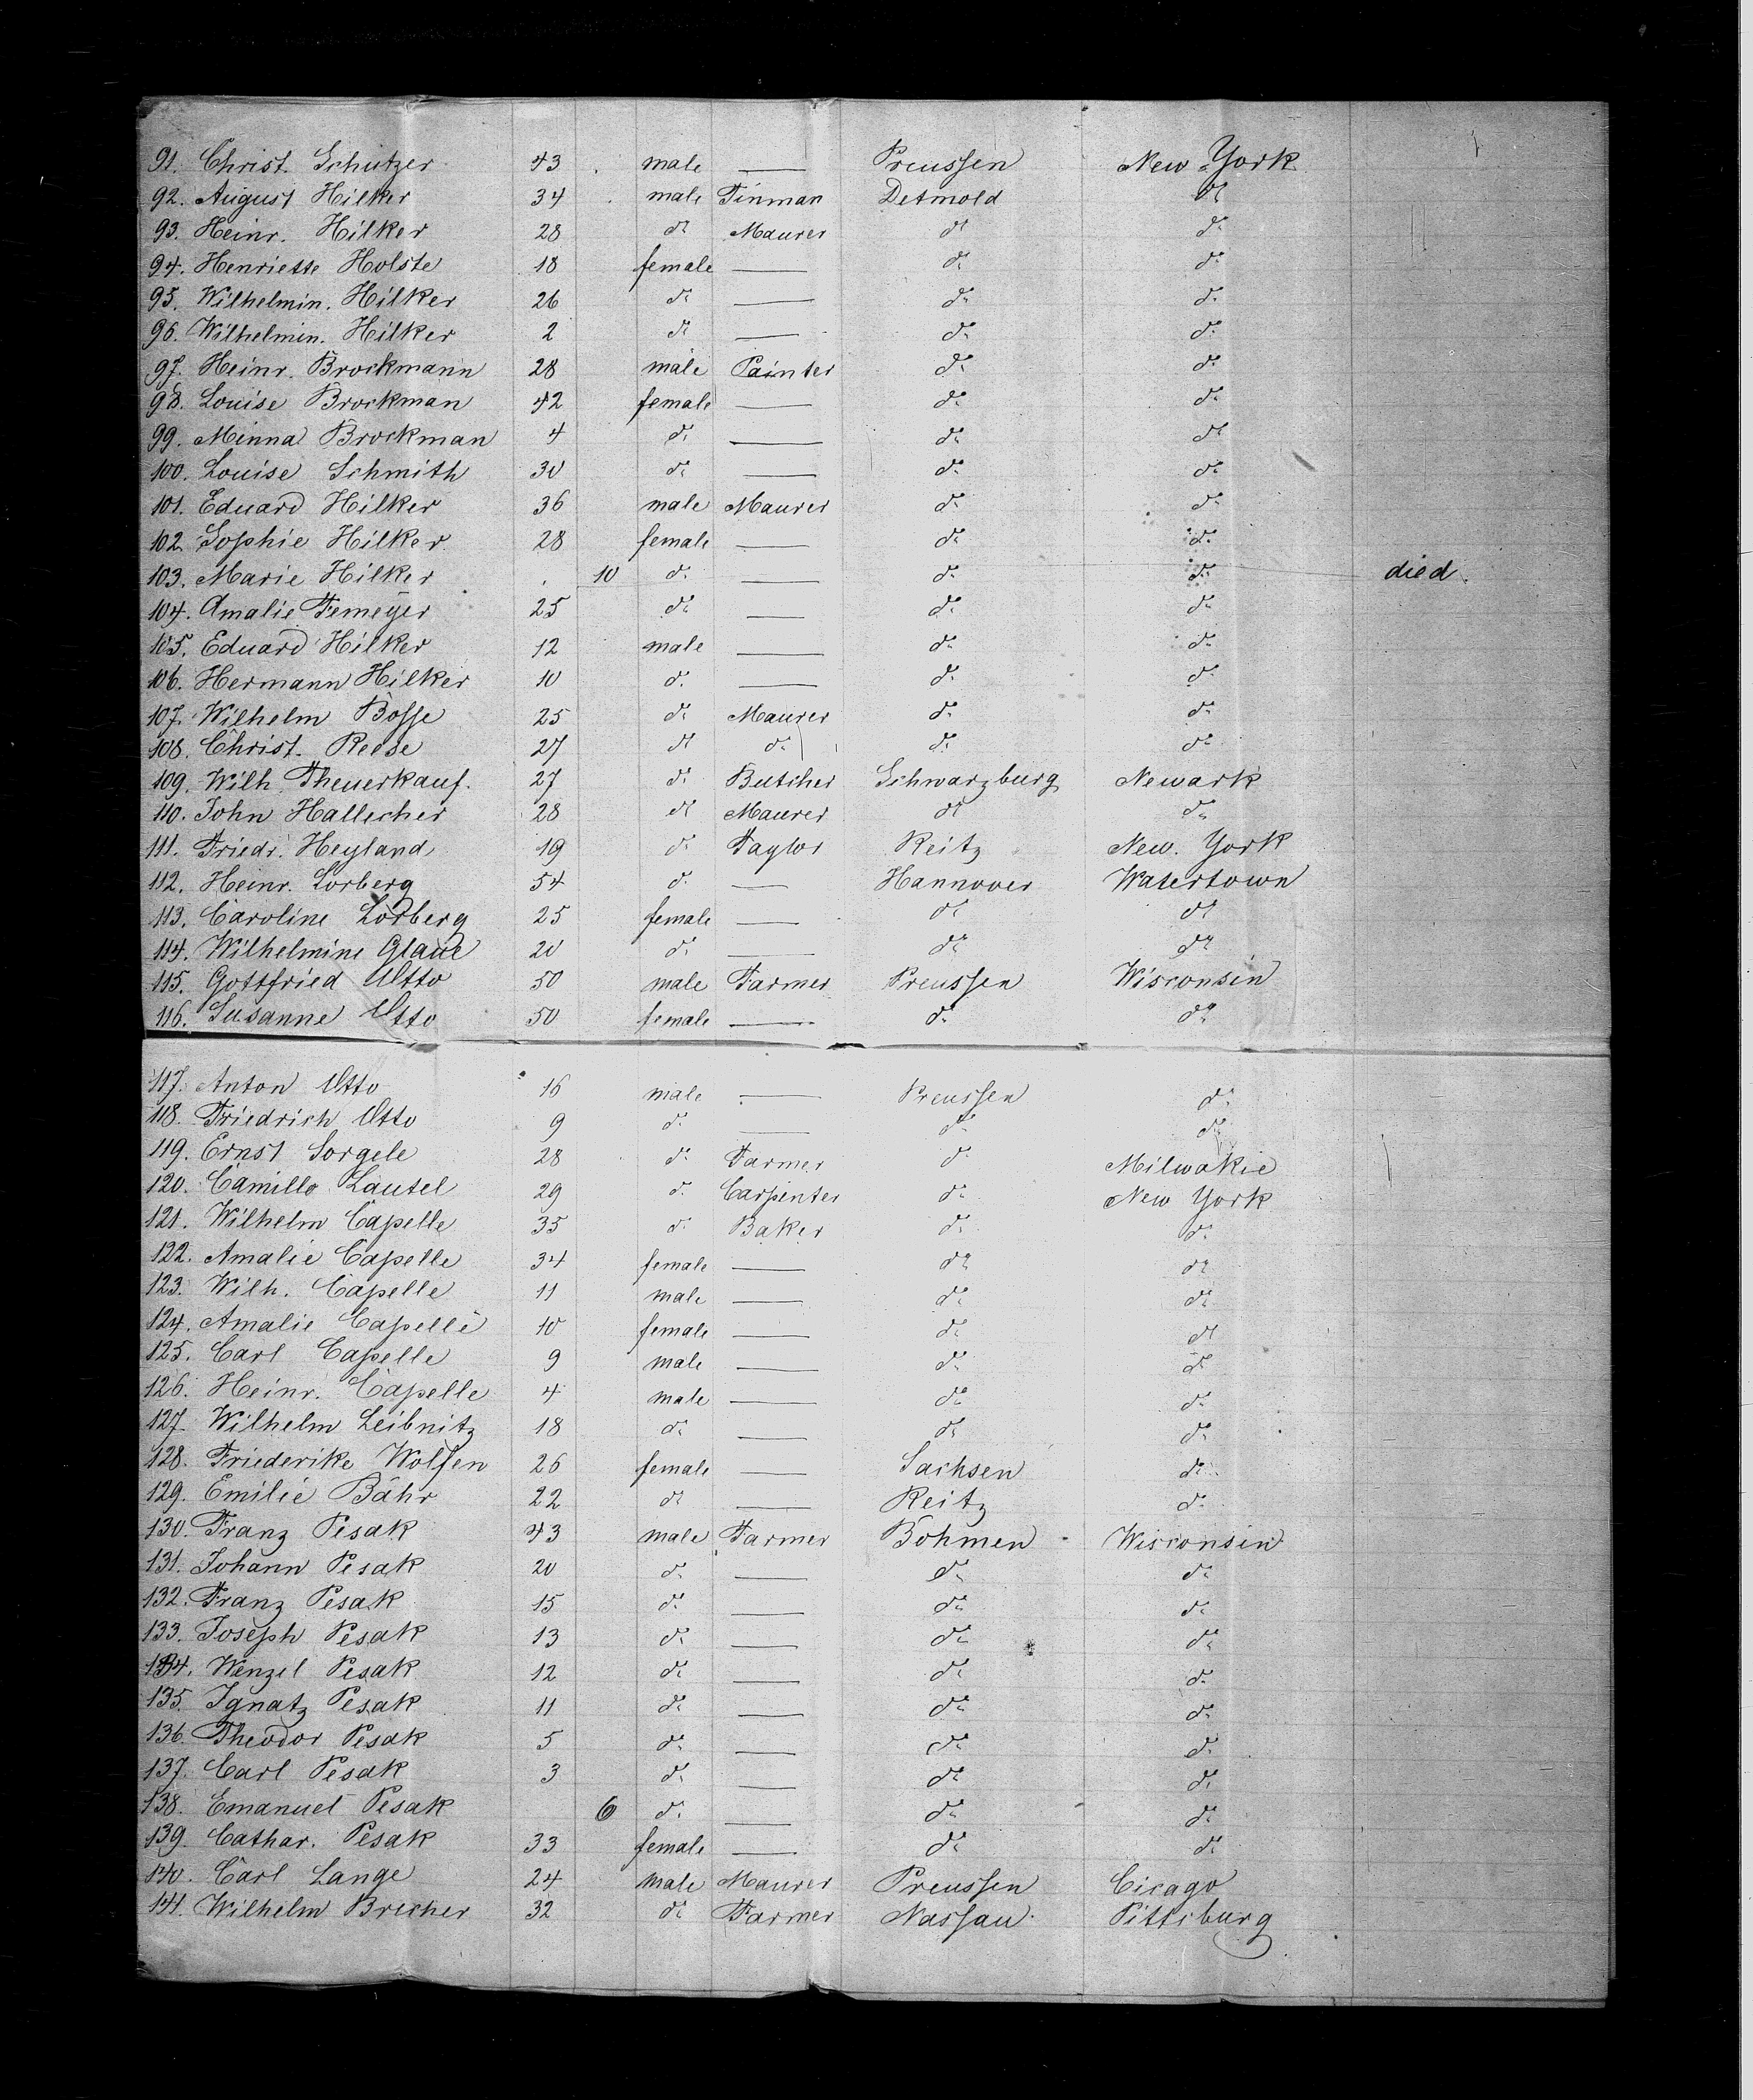 91. Christ. Schutzer 43 male — Preussen New York
92. August Hilker 34 male Tinman Detmold do
93. Heinr. Hilker 28 do Maurer do do
94. Henriette Holste 18 female — do do
95. Wilhelmin. Hilker 26 do — do do
96. Wilhelmin. Hilker 2 do — do do
97. Heinr. Brockmann 28 male Painter do do
98. Louise Brockman 42 female — do do
99. Minna Brockman 4 do — do do
100. Louise Schmith 30 do — do do
101. Eduard Hilker 36 male Maurer do do
102. Sophie Hilker 28 female — do do
103. Marie Hilker 10 do — do do died.
104. Amalie Temeyer 25 do — do do
105. Eduard Hilker 12 male — do do
106. Hermann Hilker 10 do — do do
107. Wilhelm Bosse 25 do Maurer do do
108. Christ. Reese 27 do do do do
109. Wilh. Theuerkauf. 27 do Butcher Schwarzburg Newark
110. John Hallecher 28 do Maurer do do
111. Friedr. Heyland 19 do Taylor Reitz New. York
112. Heinr. Lorberg 54 do — Hannover Watertown
113. Caroline Lorberg 25 female — do do
114. Wilhelmine Glaue 20 do — do do
115. Gottfried Otto 50 male Farmer Preussen Wisconsin
116. Susanne Otto 50 female — do do
117. Anton Otto 16 male — Preussen do
118. Friedrich Otto 9 do — do do
119. Ernst Sorgele 28 do Farmer do Milwakie
120. Camillo Lautel 29 do Carpenter do New York
121. Wilhelm Capelle 35 do Baker do do
122. Amalie Capelle 34 female — do do
123. Wilh. Capelle 11 male — do do
124. Amalie Capelle 10 female — do do
125. Carl Capelle 9 male — do do
126. Heinr. Capelle 4 male — do do
127. Wilhelm Leibnitz 18 do — do do
128. Friederike Wolfen 26 female — Sachsen do
129. Emilie Bähr 22 do — Reitz do
130. Franz Pesak 43 male Farmer Bohmen Wisconsin
131. Johann Pesak 20 do — do do
132. Franz Pesak 15 do — do do
133. Joseph Pesak 13 do — do do
134. Wenzel Pesak 12 do — do do
135. Ignatz Pesak 11 do — do do
136. Theodor Pesak 5 do — do do
137. Carl Pesak 3 do — do do
138. Emanuel Pesak 6 do — do do
139. Cathar. Pesak 33 female — do do
140. Carl Lange 24 male Maurer Preussen Cicago
141. Wilhelm Brecher 32 do Farmer Nassau Pittsburg